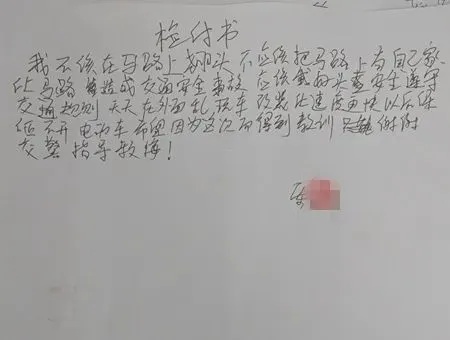 检付书
我不该在马路上翘头 不应该把马路上当自己家
让马路 造成交通安全事故 应该戴好头盔安全遵守
交通规则 天天在外面乱骑车 改装 让速度由快以后保
证不开电动车 希望因为这次而得到教训 谢谢
交警指导教悔!
陈